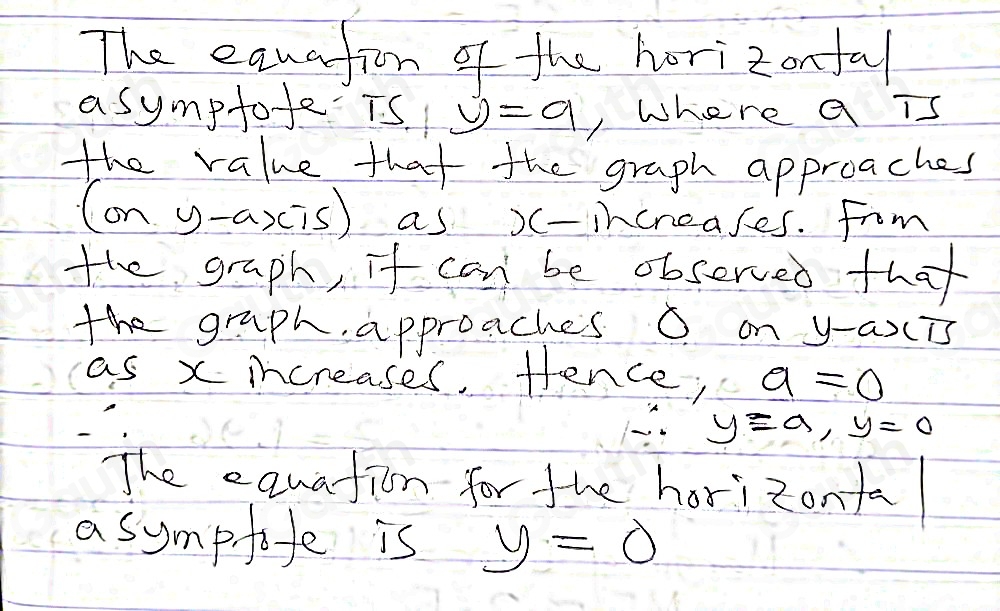 The equation of the horizontal
asymptote is y=a, where a is
the value that the graph approaches
(on y-axis) as x-increases. From
the graph, it can be observed that
the graph approaches 0 on y-axis
as x increases. Hence, a = 0
∴ ∴ y=a, y=0
The equation for the horizontal
asymptote is y = 0